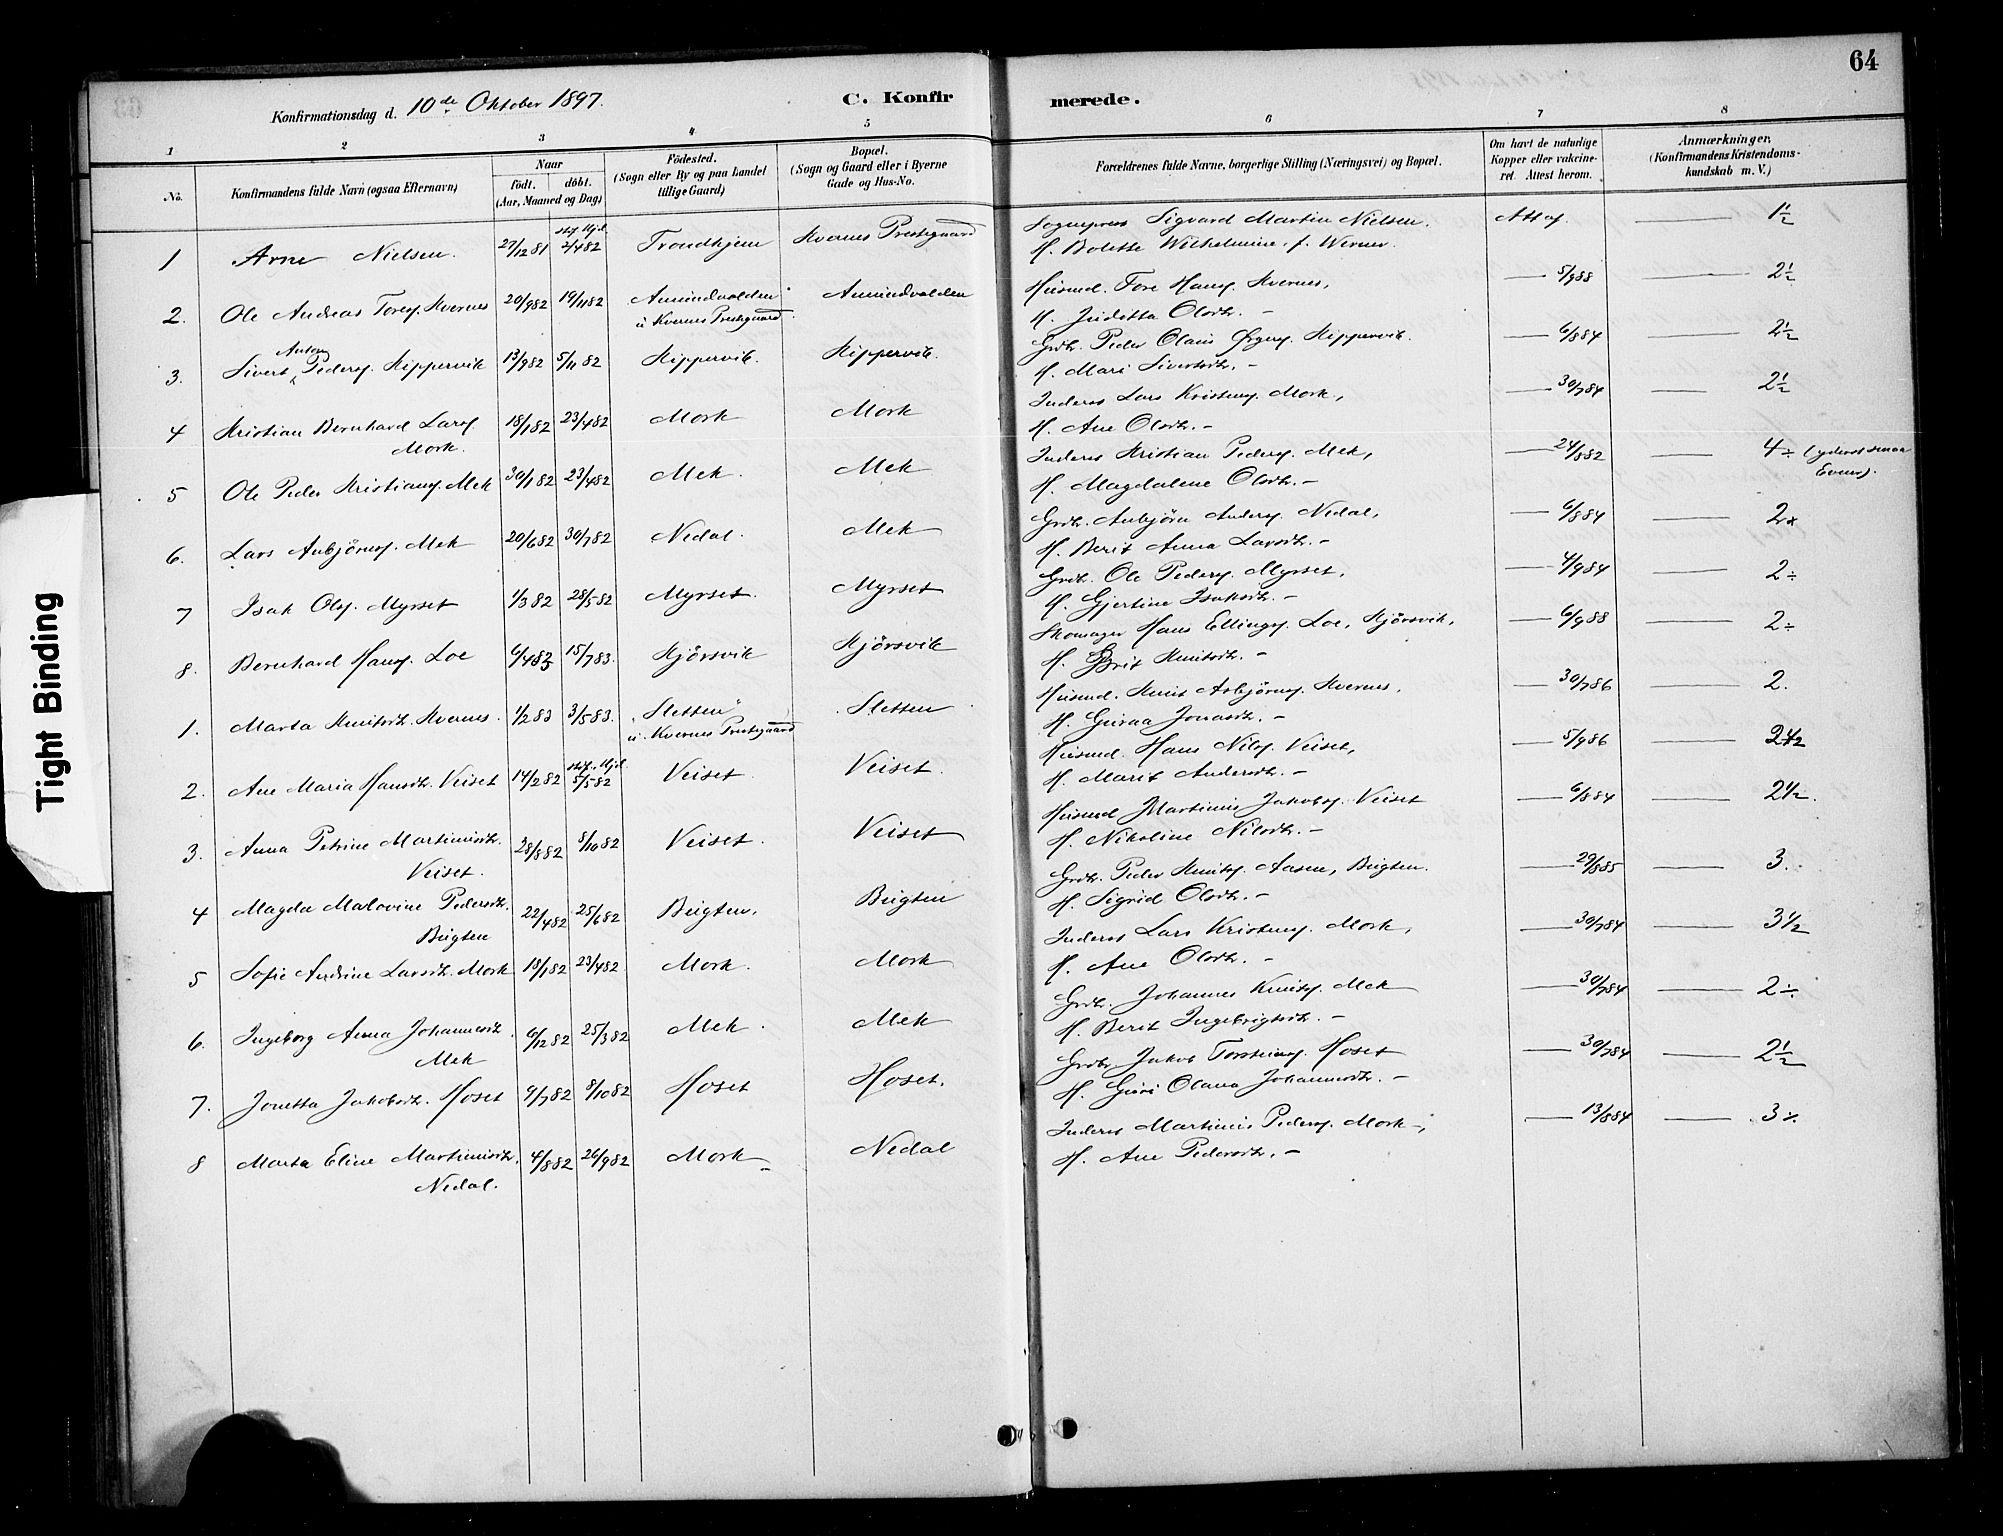 64
Konfirmationsdag d. 10de Oktober 1897.
C. Konfirmerede.
1 2 3 4 5 6 7 8
No.
Konfirmandens fulde Navn (ogsaa Efternavn)
Naar
født. døbt.
(Aar, Maaned og Dag)
Fødested.
(Sogn eller By og paa Landet
tillige Gaard)
Bopæl.
(Sogn og Gaard eller i Byerne
Gade og Hus-No.
Forældrenes fulde Navne, borgerlige Stilling (Næringsvei) og Bopæl.
Om havt de naturlige
Kopper eller vakcine-
ret. Attest herom.
Anmærkninger,
(Konfirmandens Kristendoms-
kundskab m. V.)
1 Arne Nielsen. 27/12 81 2/4 82 Trondhjem Kvernes Prestegaard
Sogneprest Sigvard Martin Nielsen. 1½
H. Bolette Wilhelmine. f. Werner.
2. Ole Andreas Tores. Kvernes 20/9 82 19/11 82 Amundvolden Amundvolden
u. Kvernes Prestegaard.
Husmd. Tore Hans. Kvernes, 5/9 88 2½
H. Juditta Olsdtr. –
3. Sivert Anton Peders. Kippervik 13/9 82 5/11 82 Kippervik. Kippervik.
Grdbr. Peder Olaus Kippervik. 6/8 84 2½
H. Mari Sivertsdtr. –
4 Kristian Bernhard Lars. 18/1 82 23/4 82 Mork Mork
Mork.
Inderst Lars Kristens. Mork, 30/7 84 2½
H. Ane Olsdtr. –
5 Ole Peder Kristians. Mek 30/1 82 23/4 82 Mek. Mek
Inderst Kristian Peders. Mek, 24/8 82 4÷ (yderst smaa
Evner).
H. Magdalene Olsdtr. –
6. Lars Anbjørns. Mek 20/6 82 30/7 82 Nedal. Mek
Grdbr. Anbjørn Anders. Nedal, 6/8 84 2+
H. Berit Anna Larsdtr. –
7 Isak Ols. Myrset 1/3 82 28/5 82 Myrset. Myrset
Grdbr. Ole Peders. Myrset, 4/9 84 2÷
H. Gjertine Isaksdtr. –
8. Bernhard Hans. Loe 6/4 83 15/7 83. Kjørsvik Kjørsvik
Skomager Hans Ellings. Loe, Kjørsvik, 6/9 88 2÷
H. Brit Knutsdtr. –
1. Marta Knutsdtr. Kvernes. 1/2 83 3/5 83. "Sletten" Sletten
u. Kvernes Prestegaard
Husmd. Knut Asbjørns. Kvernes, 30/7 86 2.
H. Guraa Jonasdtr. –
2. Ane Maria Hansdtr. Veiset 14/2 82 5/5 82 Veiset Veiset.
Husmd. Hans Nils. Veiset, 5/9 86 2½
H. Marit Andersdtr. –
3. Anna Petrine Martinusdtr. 28/8 82 8/10 82 Veiset. Veiset
Veiset.
Husmd Martinus Jakobs. Veiset 6/8 84 2½.
H. Nikoline Nilsdtr. –
4 Magda Malovine Pedersdtr. 22/4 82 25/6 82 Bugten. Bugten
Bugten
Grdbr. Peder Knuts. Aasen, Bugten. 29/8 85 3.
H. Sigrid Olsdtr. –
5 Sofie Andrine Larsdtr. Mork 18/1 82 23/4 82 Mork. Mork
Inderst Lars Kristens. Mork, 30/7 84 3½
H. Ane Olsdtr. –
6. Ingeborg Anna Johannesdtr. 6/12 82 25/3 82 Mek. Mek
Mek
Grdbr. Johannes Knuts. Mek 30/7 84 2÷
H. Berit Ingebrigtsdtr. –
7. Jonetta Jakobsdtr. Hoset 9/7 82 8/10 82 Hoset Hoset.
Grdbr. Jakob Torsteins. Hoset 30/7 84 2½
H. Guri Olana Johannesdtr. –
8 Marta Eline Martinusdtr. 4/8 82 26/9 82 Mork Nedal
Nedal.
Inderst Martinus Peders. Mork –, 13/8 84 3÷
H. Ane Pedersdtr. –
Tight Binding